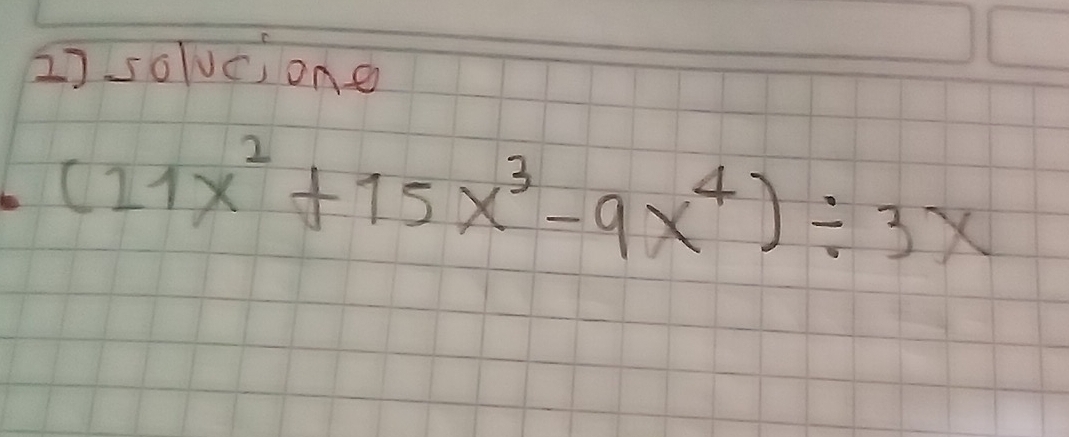 2] solucione
(21x² + 15x³ - 9x⁴) ÷ 3x